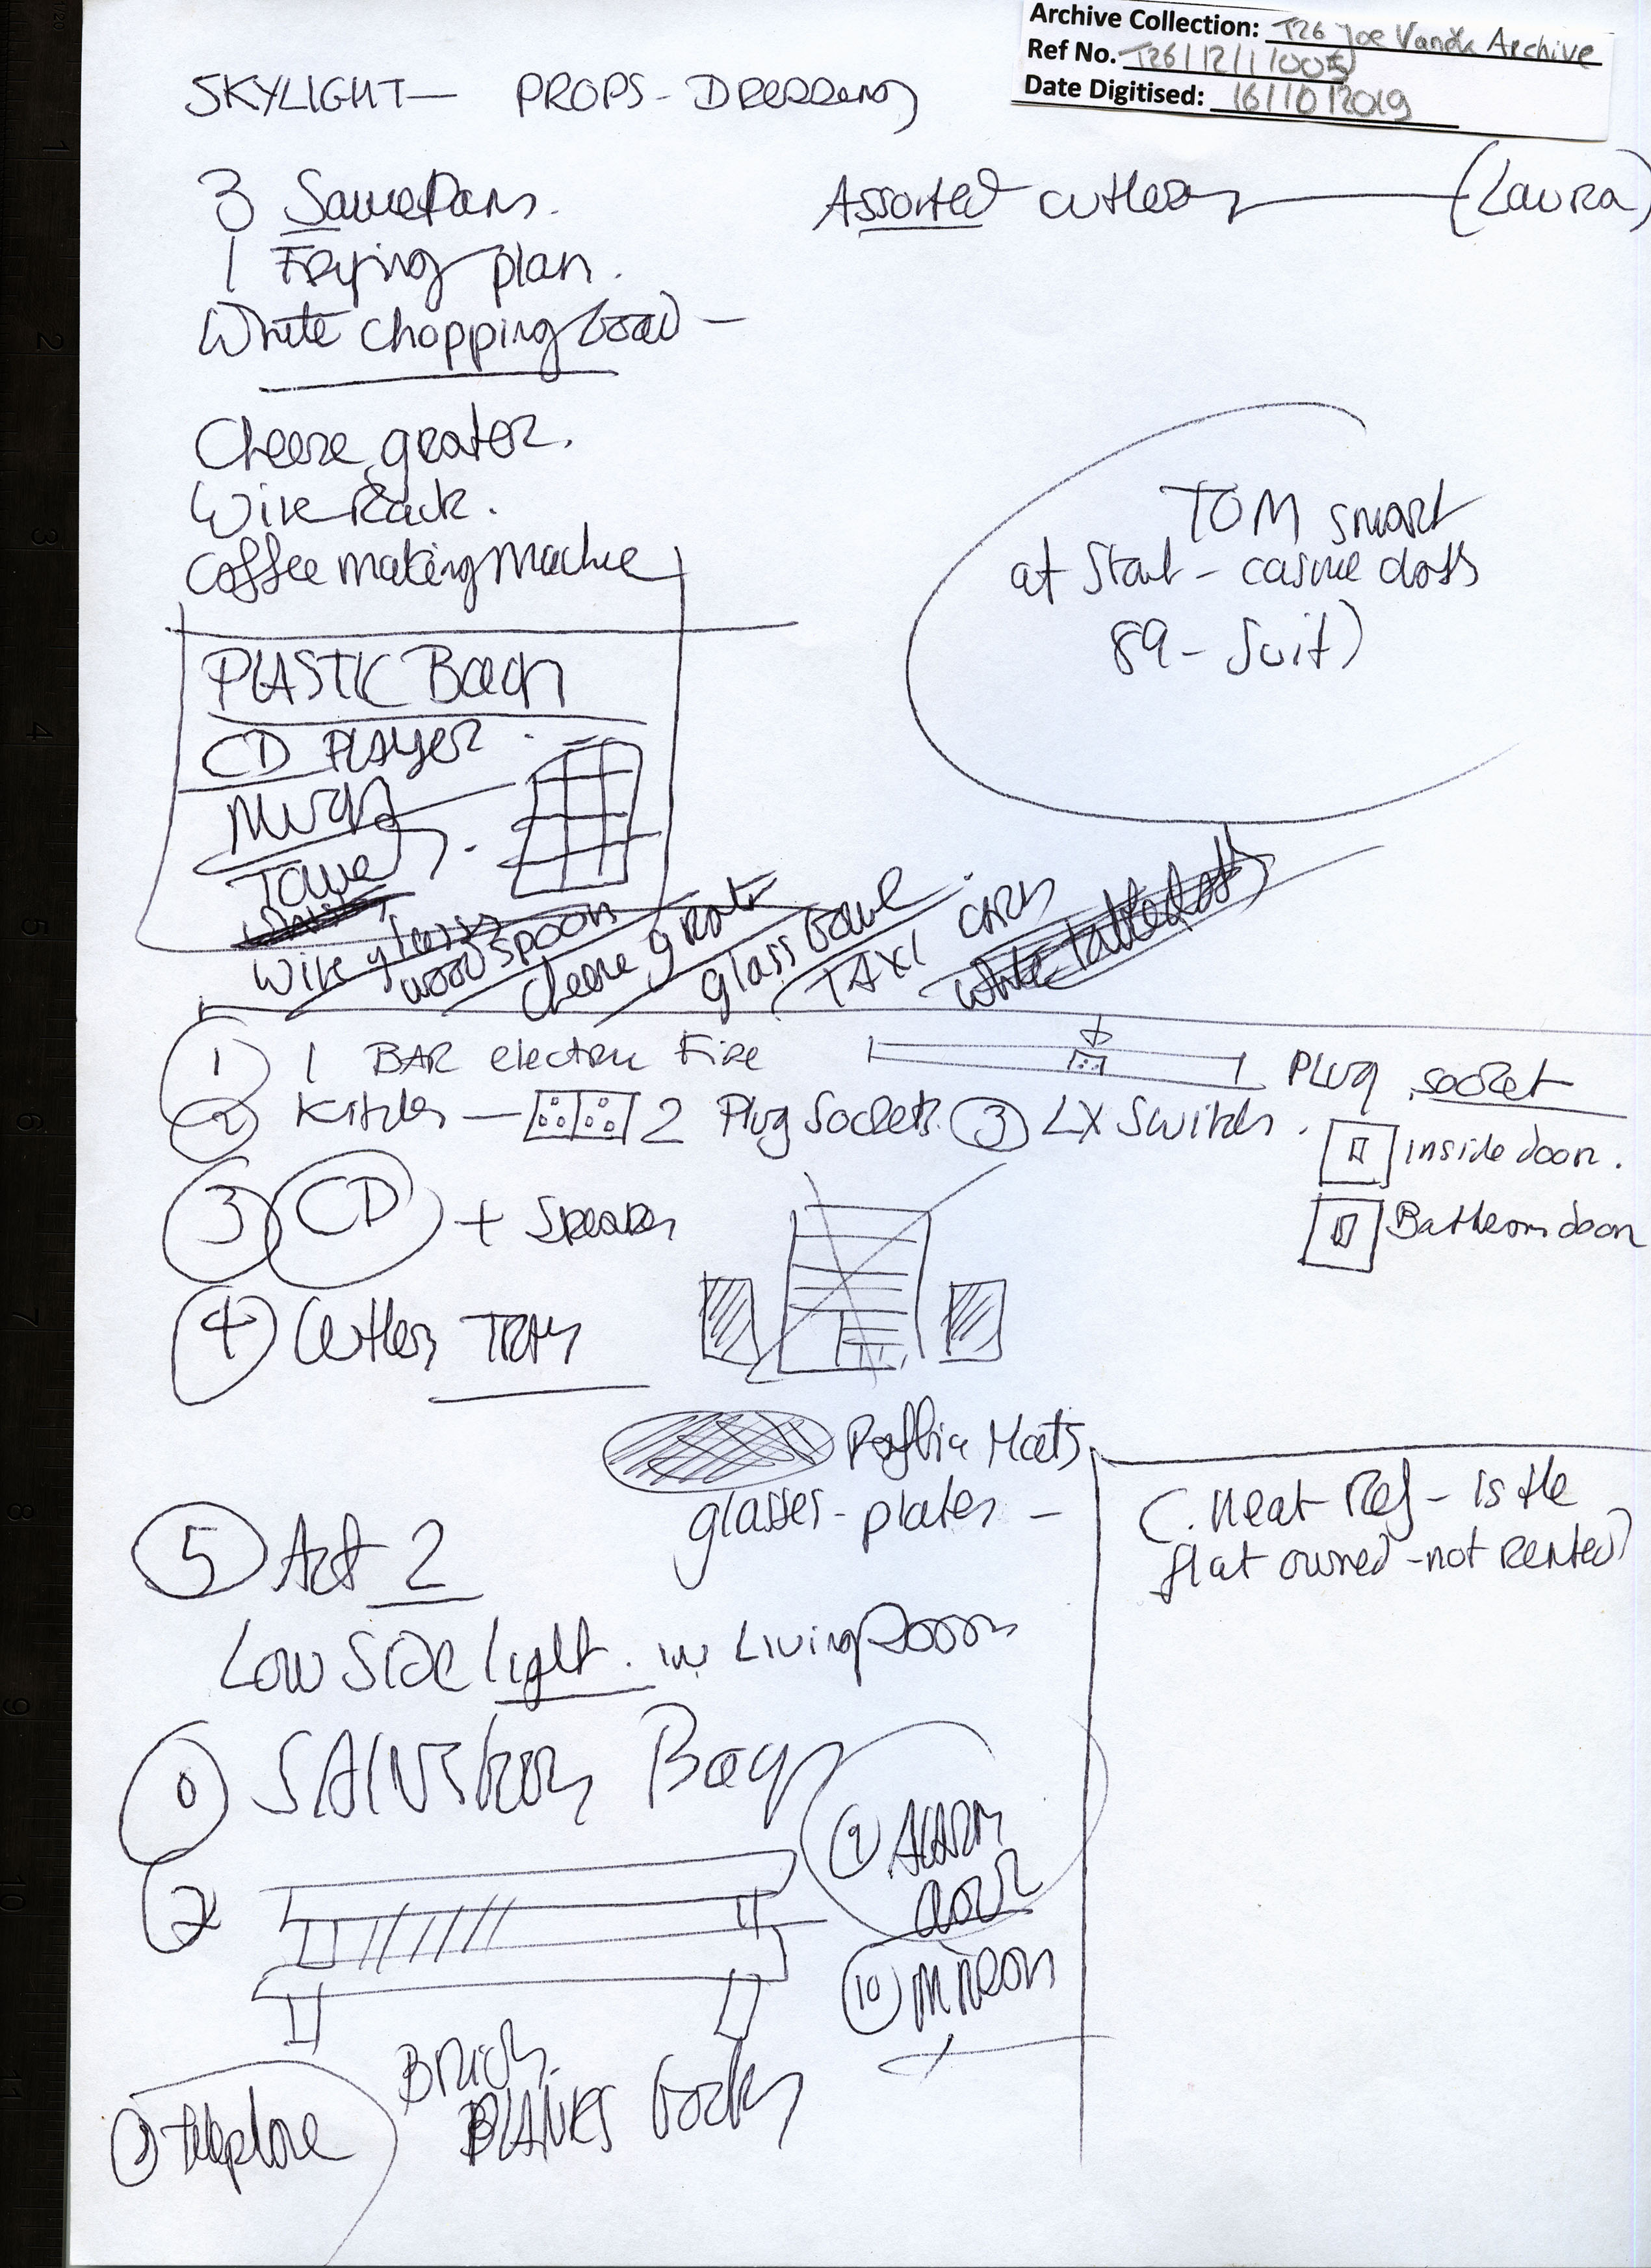 Archive Collection: T26 Joe Vanek Archive
Ref No. T26/12/1/005
Date Digitised: 16/10/2019
SKYLIGHT - PROPS - Dressing
3 SaucePans.
Assorted cutlery (Laura)
1 Frying plan.
White chopping board -
Cheese grater.
Wire Rack.
Coffee making Machine
TOM smart
at Start - casual clothes
89 - Suit)
PLASTIC Basin
CD PLAYER.
MUGS
Towel
Wire
wood spoon
cheese grater
glass bowl
TAXI cards
White tablecloth
1 1 BAR electric Fire
Plug socket
2 Kitchen - 2 Plug Sockets. 3 LX Switches.
Inside door.
3 CD + Speakers
Bathroom door
4 Cutlery TRAY
Raffia Mats
glasses - plates -
C. Heat Ref - Is the
flat owned - not rented)
5 Act 2
Low SIDE light. in Living Room
6 SAINSBURY Bag
9 ALARM
CLOCK
7
10 MIRROR
BRICKS
PLANKS books
8 telephone